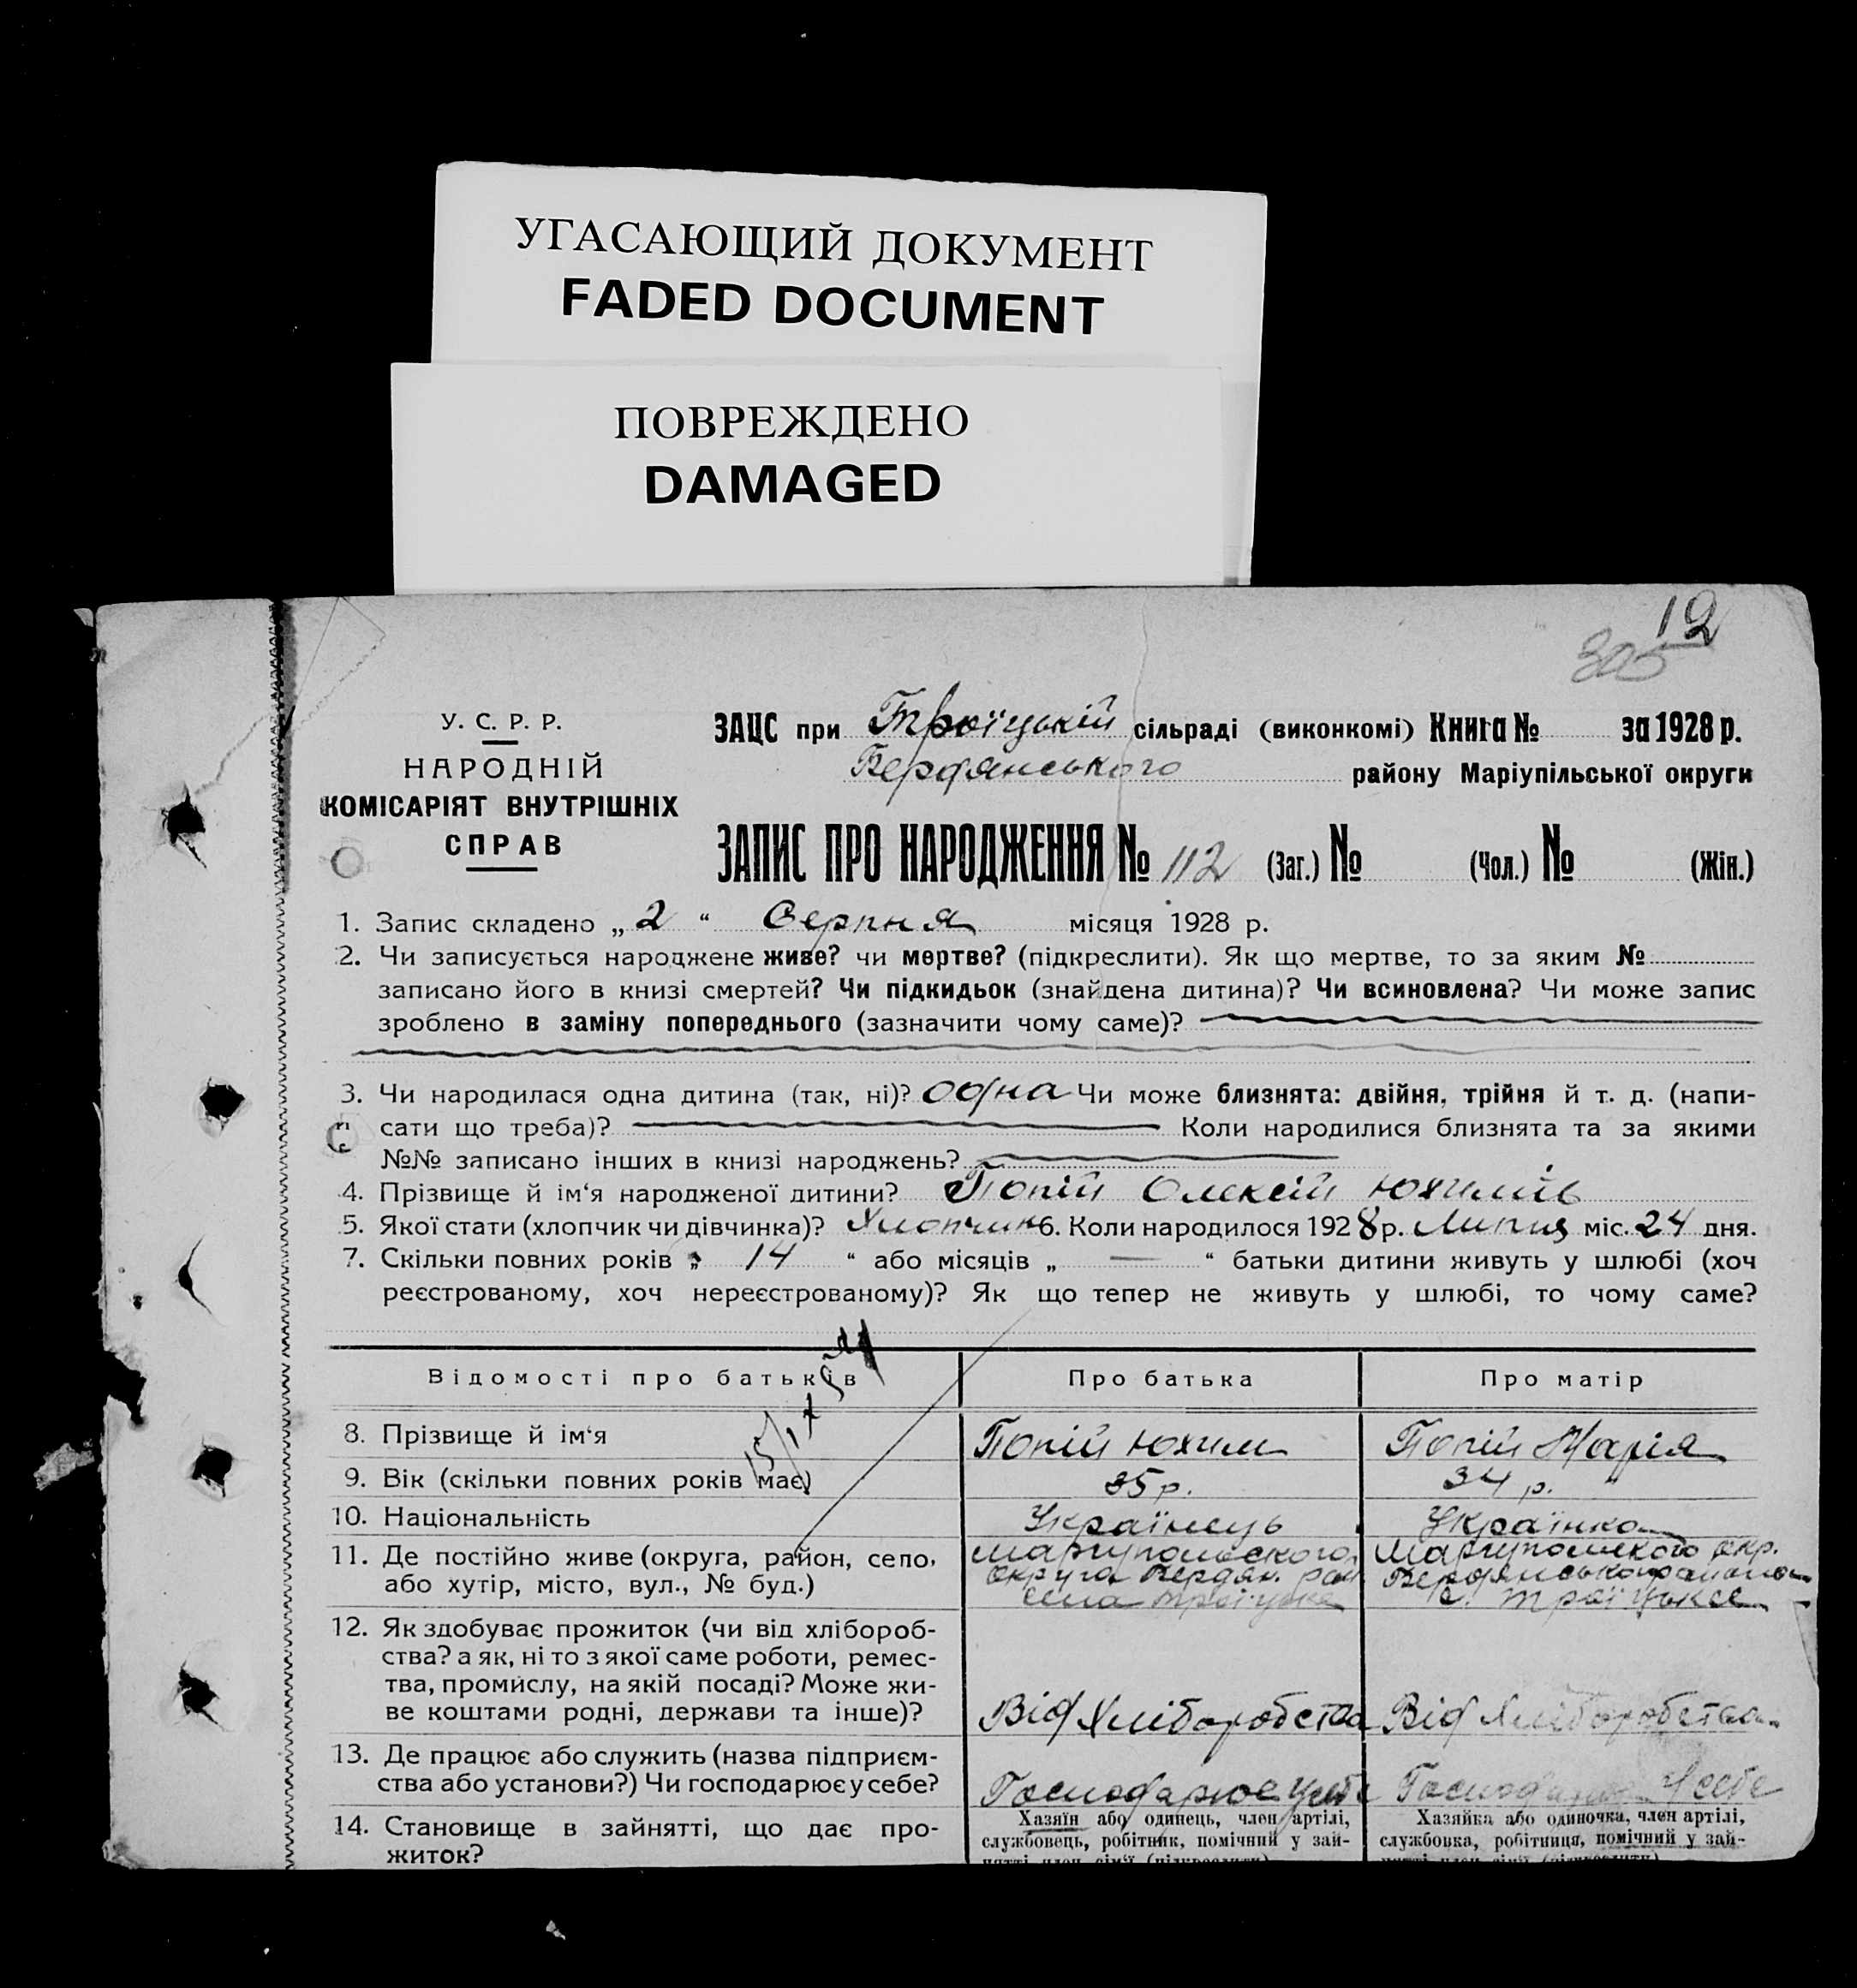 УГАСАЮЩИЙ ДОКУМЕНТ
FADED DOCUMENT
ПОВРЕЖДЕНО
DAMAGED
12
305
У. С. Р. Р.
НАРОДНІЙ
КОМІСАРІЯТ ВНУТРІШНІХ
СПРАВ
ЗАЦС при Троїцькій сільраді (виконкомі) Книга № за 1928 р.
Бердянського району Маріупільської округи
ЗАПИС ПРО НАРОДЖЕННЯ № 112 (Заг.) № (Чол.) № (Жін.)
1. Запис складено „ 2 “ Серпня місяця 1928 р.
2. Чи записується народжене живе? чи мертве? (підкреслити). Як що мертве, то за яким №
записано його в книзі смертей? Чи підкидьок (знайдена дитина)? Чи всиновлена? Чи може запис
зроблено в заміну попереднього (зазначити чому саме)?
3. Чи народилася одна дитина (так, ні)? одна Чи може близнята: двійня, трійня й т. д. (напи-
сати що треба)? Коли народилися близнята та за якими
№№ записано інших в книзі народжень?
4. Прізвище й ім‘я народженої дитини? Попій Олексій Юхимів
5. Якої стати (хлопчик чи дівчинка)? Хлопчик 6. Коли народилося 1928 р. Липця міс. 24 дня.
7. Скільки повних років „ 14 “ або місяців „ — “ батьки дитини живуть у шлюбі (хоч
реєстрованому, хоч нереєстрованому)? Як що тепер не живуть у шлюбі, то чому саме?
Відомості про батьків Про батька Про матір
8. Прізвище й ім‘я Попій Юхим Попій Марія
9. Вік (скільки повних років має) 35 р. 34 р.
10. Національність Українець Українка
11. Де постійно живе (округа, район, село, Маріупольского Маріупольского окр.
або хутір, місто, вул., № буд.) округа Бердян. рай Бердянського району
села Троїцьке с. Троїцьке
12. Як здобуває прожиток (чи від хлібороб-
ства? а як, ні то з якої саме роботи, ремес-
тва, промислу, на якій посаді? Може жи-
ве коштами родні, держави та інше)? Від Хліборобства Від Хліборобства
13. Де працює або служить (назва підприєм-
ства або установи?) Чи господарює у себе? Господарює у себе Господарює У себе
14. Становище в зайнятті, що дає про-
житок?
Хазяїн або одинець, член артілі,
службовець, робітник, помічний у зай-
нятті член сім‘ї (підкреслити)
Хазяйка або одиночка, член артілі,
службовка, робітниця, помічний у зай-
нятті член сім‘ї (підкреслити)